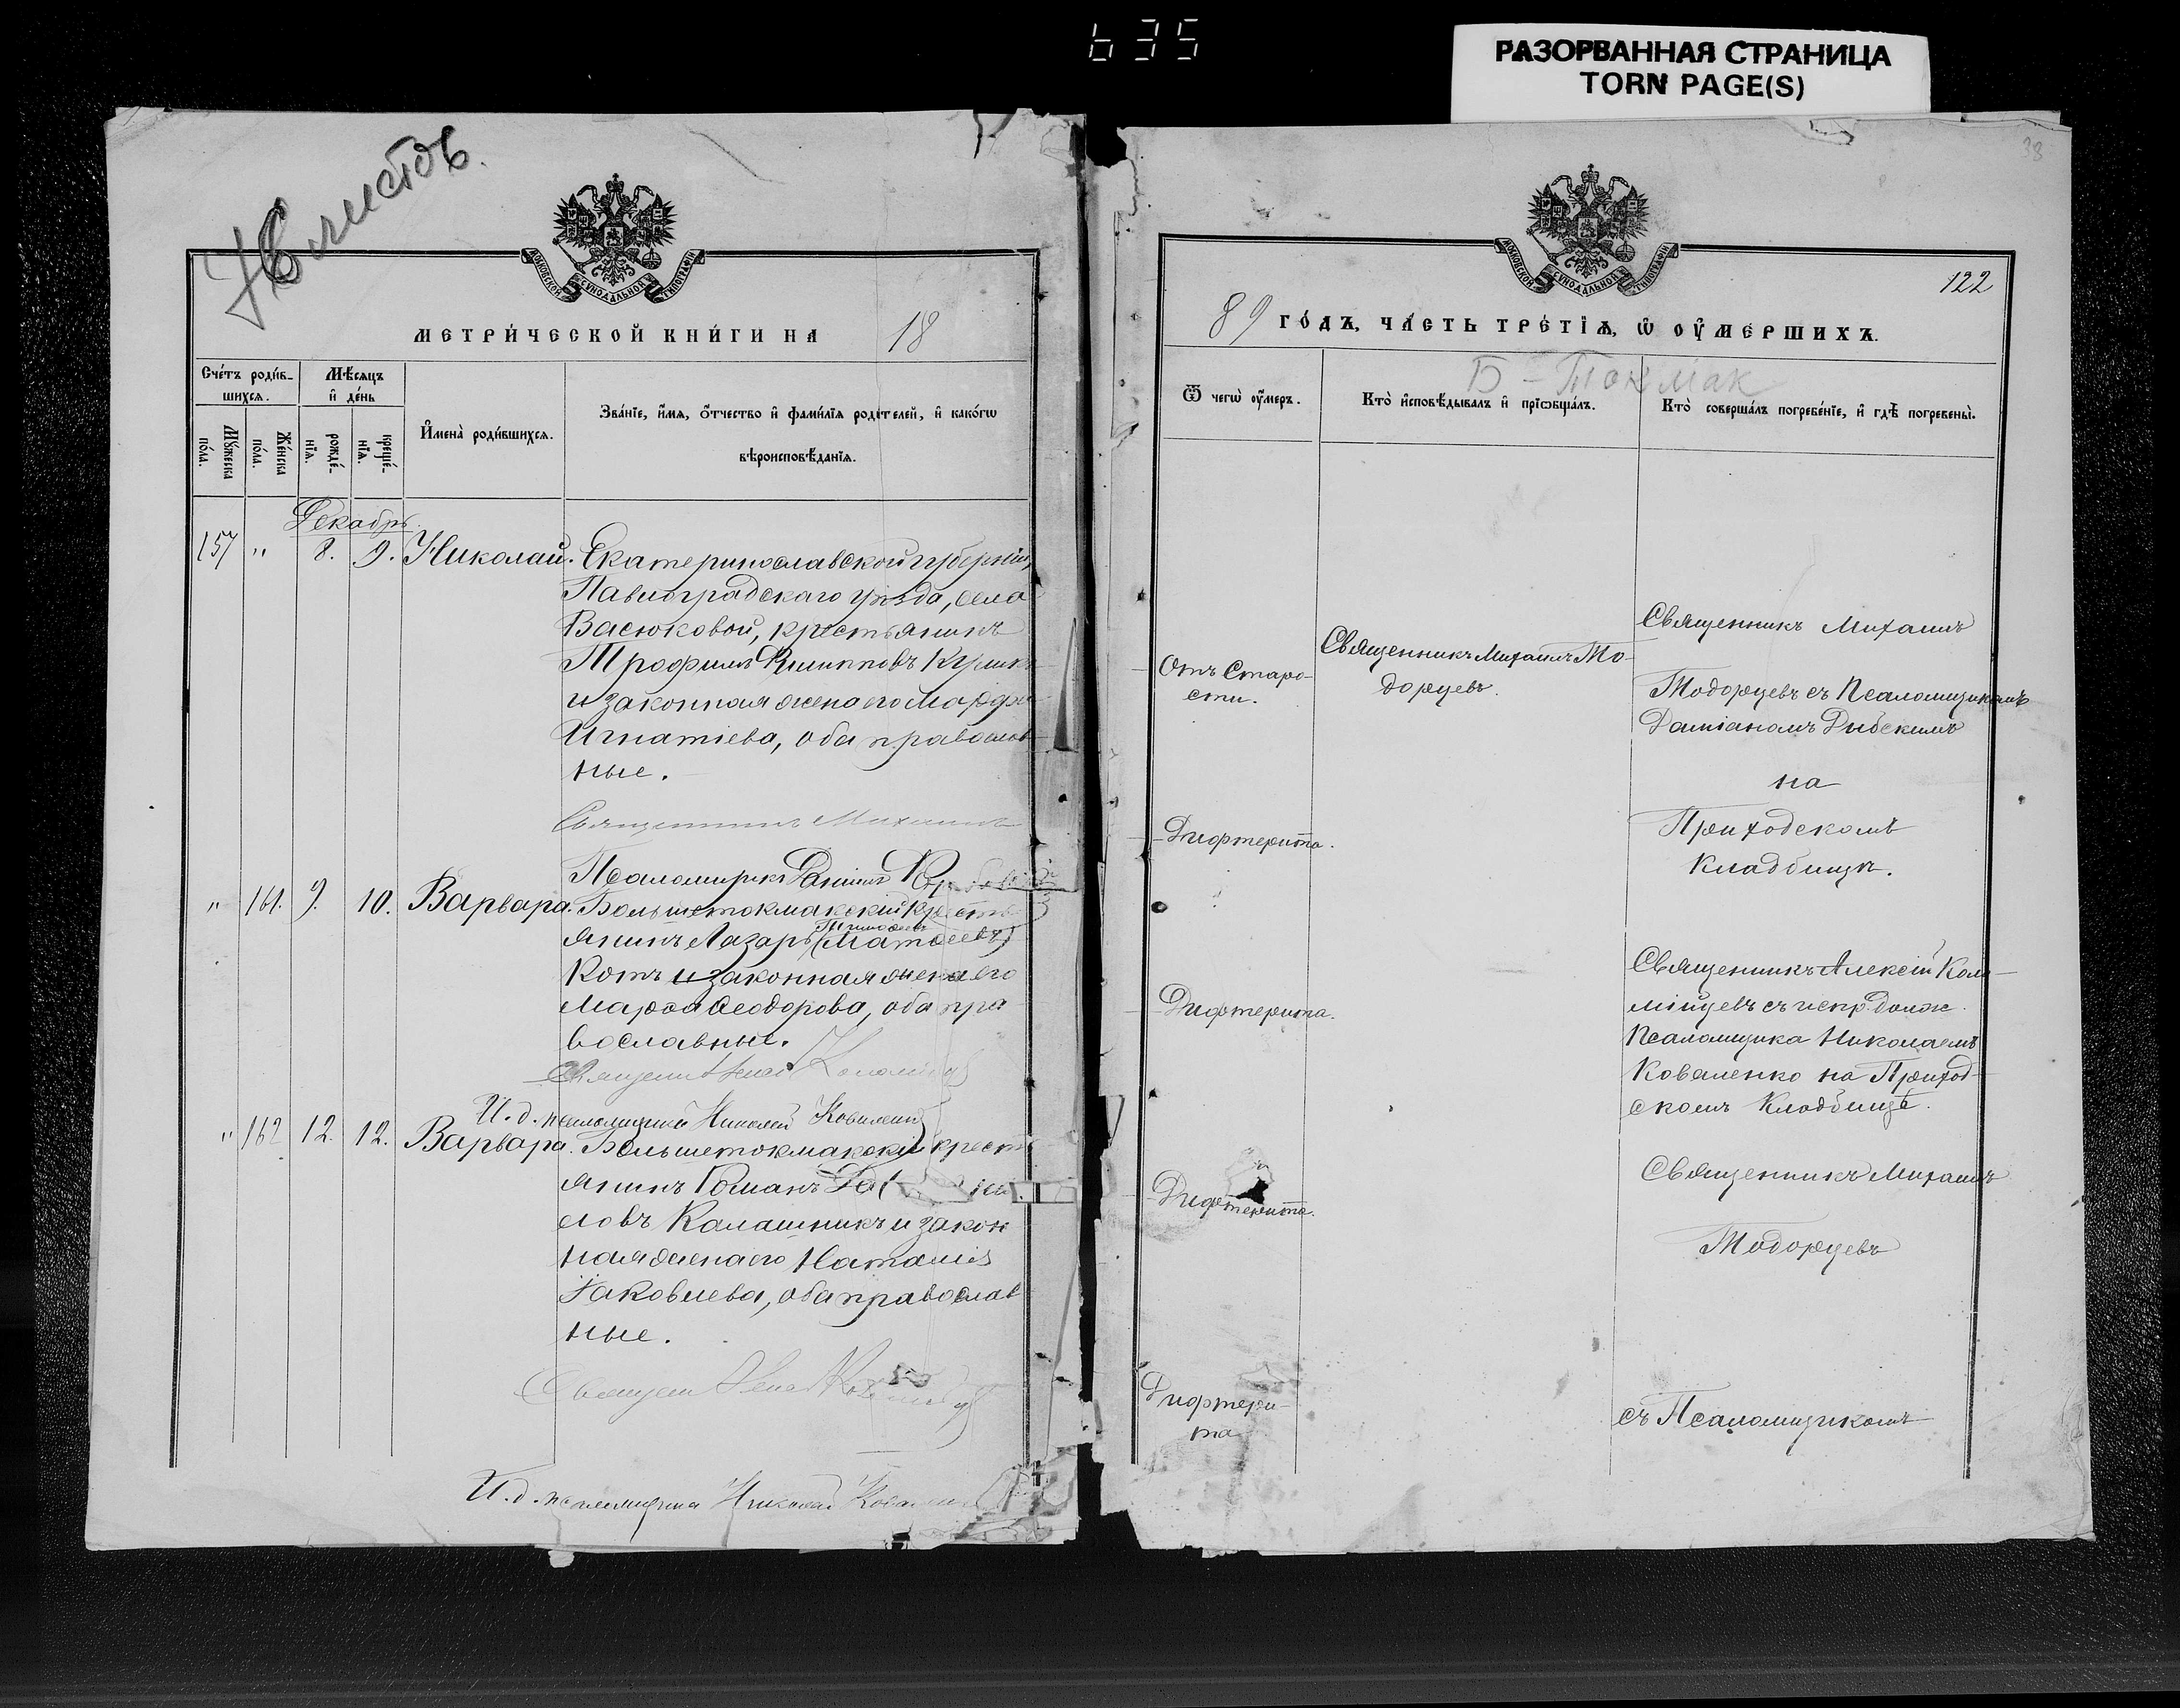 635
РАЗОРВАННАЯ СТРАНИЦА
TORN PAGE(S)
листовъ.
МОСКОВСКОЙ СѴНОДАЛЬНОЙ ТИПОГРАФІИ
МЕТРИ́ЧЕСКОЙ КНИ́ГИ НА 18
Сче́тъ роди́в-
шихсѧ.
Мѣ́сѧцъ
и҆ де́нь
Мꙋ́жеска
по́ла.
Же́нска
по́ла.
рожде́-
нїѧ.
креще́-
нїѧ.
И҆мена̀ роди́вшихсѧ.
Зва́нїе, и҆́мѧ, ѻ҆́тчество и҆ фами́лїѧ роди́телей, и҆ како́гѡ
вѣроисповѣ́данїѧ.
Декабрь
157 " 8. 9. Николай. Екатеринославской губерніи,
Павлоградскаго уѣзда, села
Васюковой, крестьянинъ
Трофимъ Филипповъ
и законная жена его Марфа
Игнатіева, оба православ
ные.
Священникъ Михаилъ
Псаломщикъ
" 161. 9. 10. Варвара. Большетокмакскій кресть
янинъ Лазарь Тимофеевъ (Матѳеевъ)
Котъ и законная жена его
Марѳа Ѳеодорова, оба пра
вославные.
И. д. псаломщика Николай Коваленко
" 162 12. 12. Варвара. Большетокмакскій крест
янинъ Романъ
ловъ Калашникъ и закон
ная жена его Наталія
Іаковлева, оба православ
ные.
И. д. псаломщика Николай Коваленко
38
МОСКОВСКОЙ СѴНОДАЛЬНОЙ ТИПОГРАФІИ
122
89 ГО́ДЪ, ЧА́СТЬ ТРЕ́ТЇѦ, Ѡ҆ ОУ҆МЕ́РШИХЪ.
Б-Токмак
Ѿ чегѡ̀ оу҆́меръ.
Кто̀ и҆сповѣ́дывалъ и҆ прїѡбща́лъ.
Кто̀ соверша́лъ погребе́нїе, и҆ гдѣ̀ погребены̀.
Отъ Старо-
сти.
Священникъ Михаилъ То-
дорцевъ.
Священникъ Михаилъ
Тодорцевъ съ Псаломщикомъ
Даміаномъ
на
Приходскомъ
Кладбищѣ.
Дифтерита.
Дифтерита.
Священникъ Алексій Коло-
мійцевъ съ испр. долж.
Псаломщика Николаемъ
Коваленко на Приход-
скомъ Кладбищѣ.
Дифтерита.
Священникъ Михаилъ
Тодорцевъ
Дифтери-
та
съ Псаломщикомъ